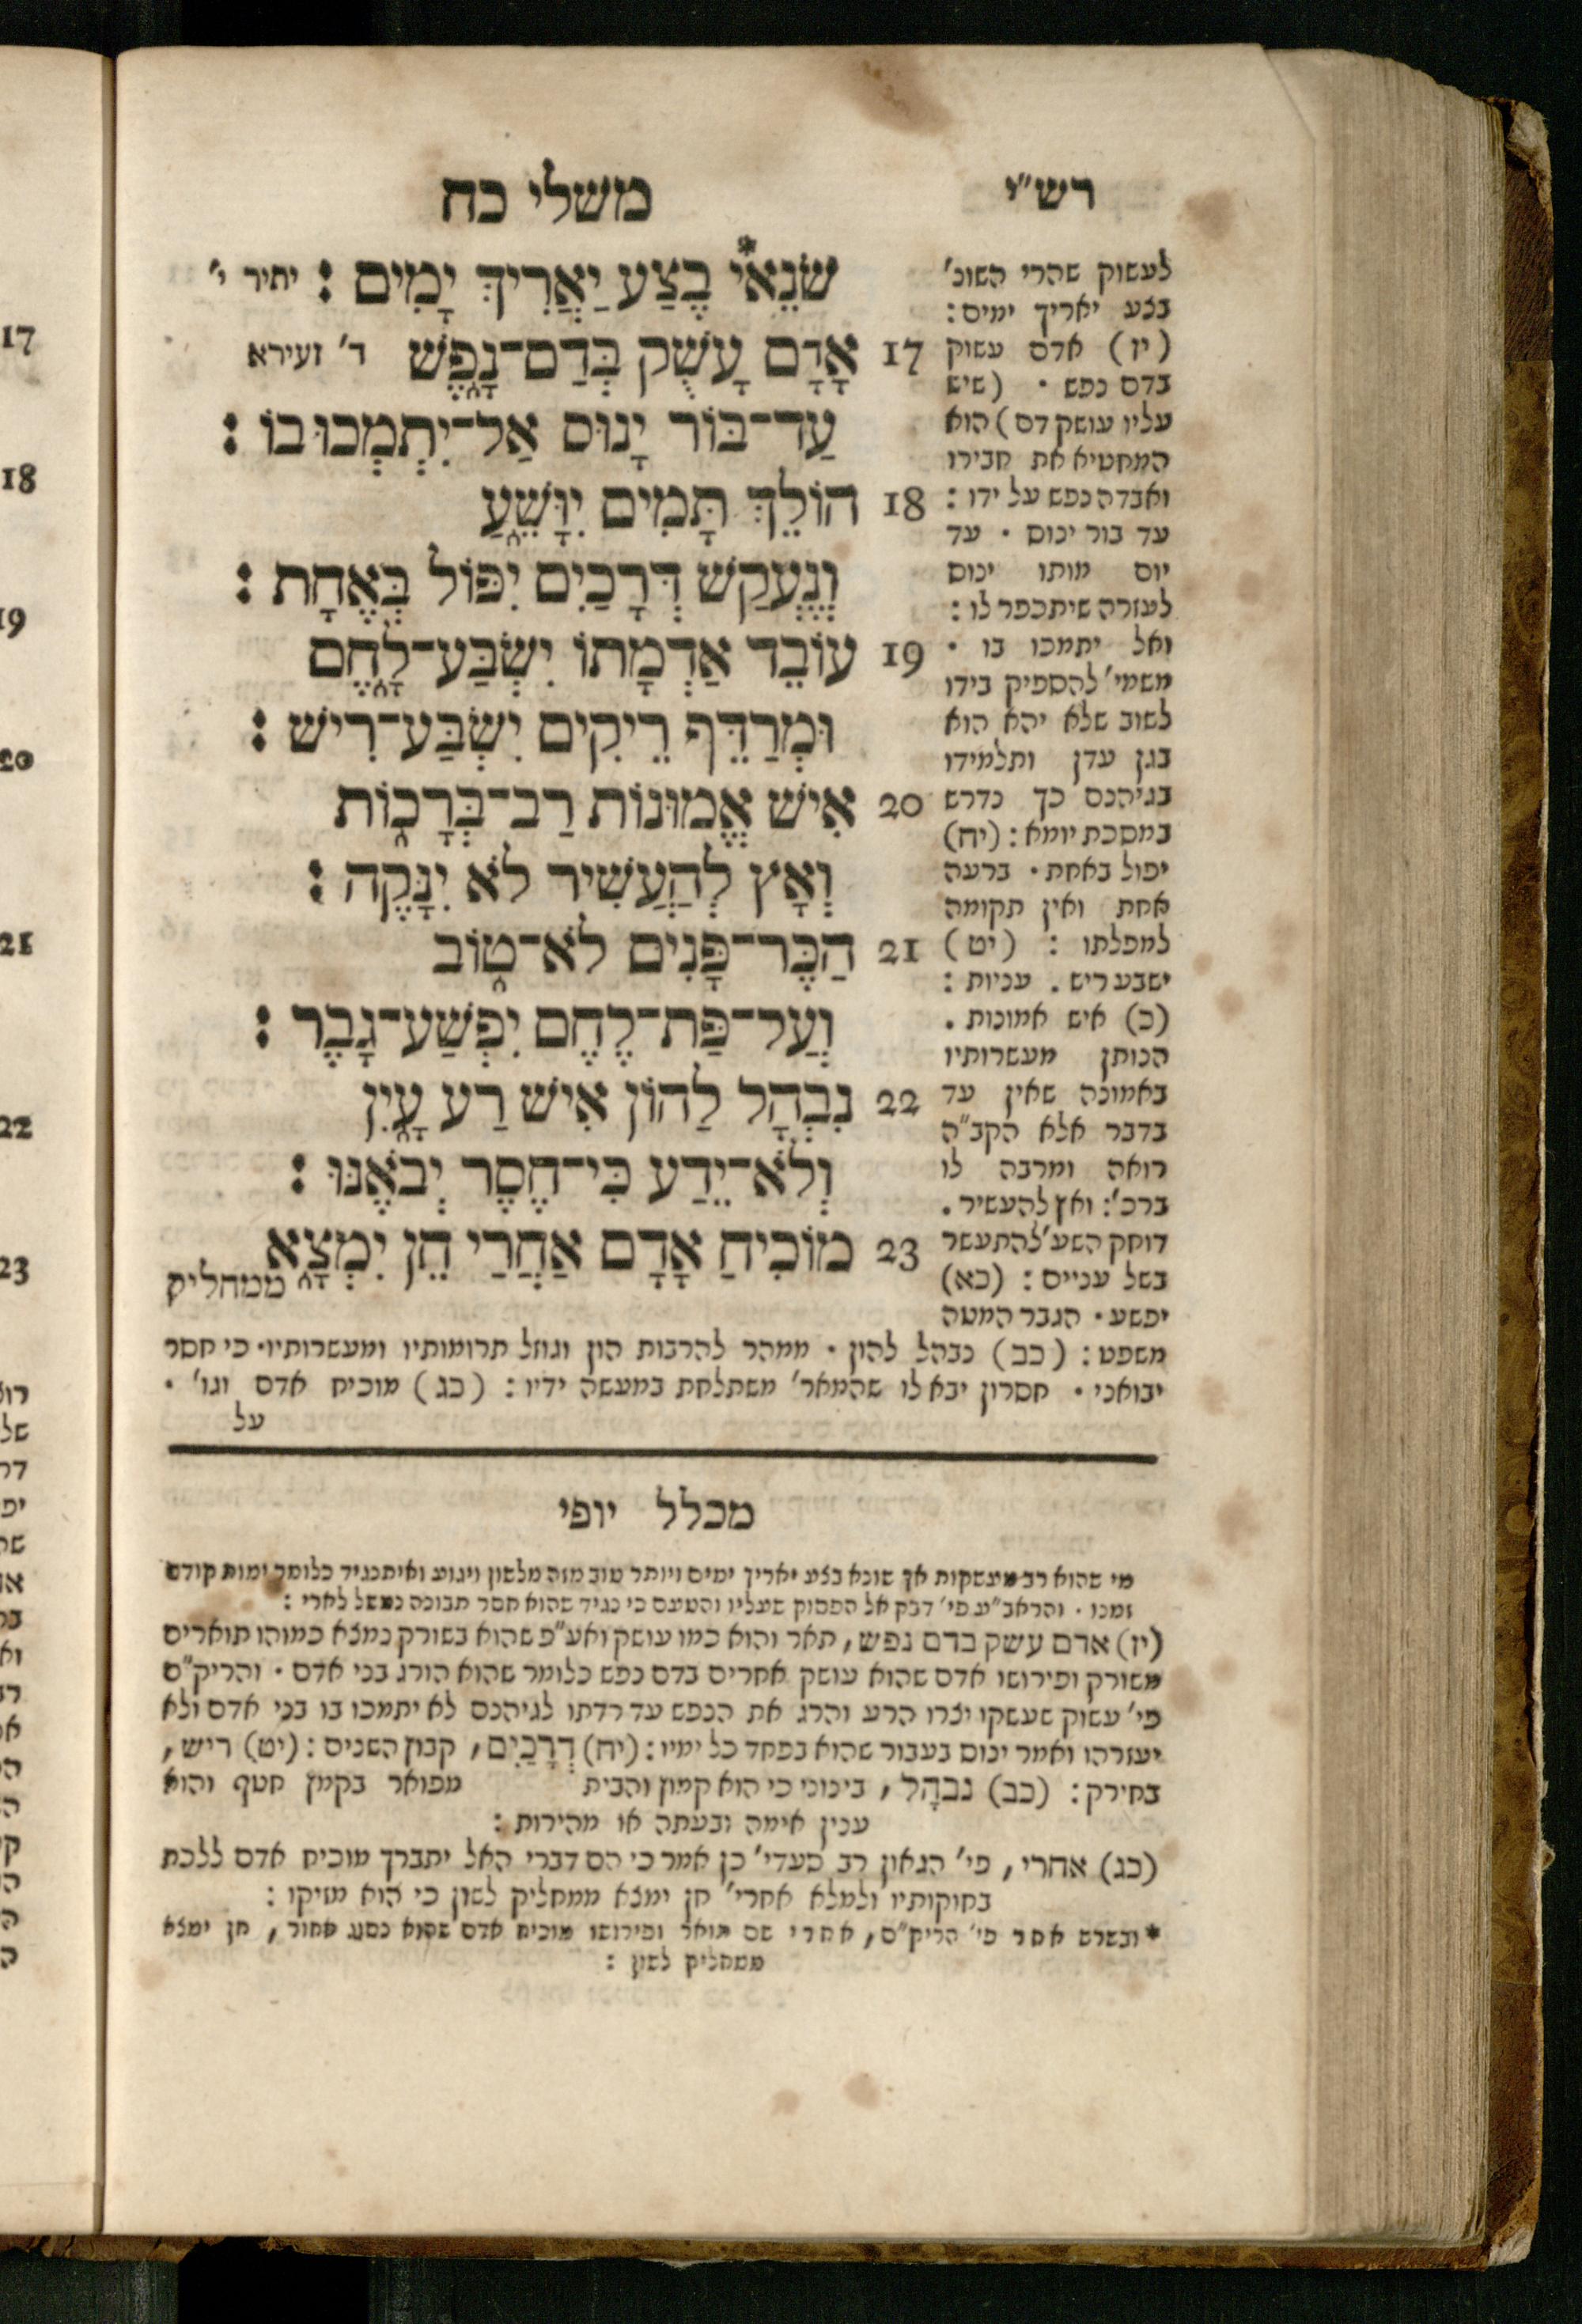 רש״י
משלי כח
שֹׂנֵאֵי בֶצַע יַאֲרִיךְ יָמִים : יתיר י׳
17 אָדָם עָשֻׁק בְּדַם־נָפֶשׁ ד׳ זעירא
עַד־בּוֹר יָנוּס אַל־יִתְמְכוּ בוֹ :
18 הוֹלֵךְ תָּמִים יִוָּשֵׁעַ
וְנֶעְקַשׁ דְּרָכַיִם יִפּוֹל בְּאֶחָת :
19 עוֹבֵד אַדְמָתוֹ יִשְׂבַּע־לָחֶם
וּמְרַדֵּף רֵיקִים יִשְׂבַּע־רִישׁ :
20 אִישׁ אֱמוּנוֹת רַב־בְּרָכוֹת
וְאָץ לְהַעֲשִׁיר לֹא יִנָּקֶה :
21 הַכֶּר־פָּנִים לֹא־טוֹב
וְעַל־פַּת־לֶחֶם יִפְשַׁע־גָּבֶר :
22 נִבְהָל לַהוֹן אִישׁ רַע עָיִן
וְלֹא־יֵדַע כִּי־חֶסֶר יְבֹאֶנּוּ :
23 מוֹכִיחַ אָדָם אַחֲרַי חֵן יִמְצָא
ממחליק
לעשוק שהרי השונ׳
בצע יאריך ימים :
(יז) אדם עשוק
בדם נפש . (שיש
עליו עושק דם) הוא
המחטיא את חבירו
ואבדה נפש על ידו :
עד בור ינוס . עד
יום מותו ינוס
לעזרה שיתכפר לו :
ואל יתמכו בו .
משמי׳ להספיק בידו
לשוב שלא יהא הוא
בגן עדן ותלמידו
בגיהנם כך נדרש
במסכת יומא : (יח)
יפול באחת . ברעה
אחת ואין תקומה
למפלתו : (יט)
ישבע ריש . עניות :
(כ) איש אמונות .
הנותן מעשרותיו
באמונה שאין עד
בדבר אלא הקב״ה
רואה ומרבה לו
ברכ׳ : ואץ להעשיר .
דוחק השע׳ להתעשר
בשל עניים : (כא)
יפשע . הגבר המטה
משפט : (כב) נבהל להון . ממהר להרבות הון וגוזל תרומותיו ומעשרותיו . כי חסר
יבואני . חסרון יבא לו שהמאר׳ משתלחת במעשה ידיו : (כג) מוכיח אדם וגו׳ .
על
מכלל יופי
מי שהוא רב מעשקות אך שונא בצע יאריך ימים ויותר טוב מזה מלשון ויגוע ואיתנגיד כלומר ימות קודם
זמנו . והראב״ע פי׳ דבק אל הפסוק שעליו והטעם כי נגיד שהוא חסר תבונה נמשל לארי :
(יז) אדם עשק בדם נפש, תאר והוא כמו עושק ואע״פ שהוא בשורק נמצא כמוהו תוארים
משורק ופירושו אדם שהוא עושק אחרים בדם נפש כלומר שהוא הורג בני אדם . והריק״ם
פי׳ עשוק שעשקו יצרו הרע והרג את הנפש עד רדתו לגיהנם לא יתמכו בו בני אדם ולא
יעזרהו ואמר ינוס בעבור שהוא בפחד כל ימיו : (יח) דְרָכַיִם, קבוץ השנים : (יט) ריש,
בחירק : (כב) נבהָל, בינוני כי הוא קמוץ והבית מפואר בקמץ חטף והוא
ענין אימה ובעתה או מהירות :
(כג) אחרי, פי׳ הגאון רב סעדי׳ כן אמר כי הם דברי האל יתברך מוכיח אדם ללכת
בחוקותיו ולמלא אחרי׳ חן ימצא ממחליק לשון כי הוא מזיקו :
* ובשרש אחר פי׳ הריק״ם, אחרי שם תואר ופירושו מוכיח אדם שהוא נסוג אחור, חן ימצא
ממחליק לשון :
17
18
19
20
21
22
23